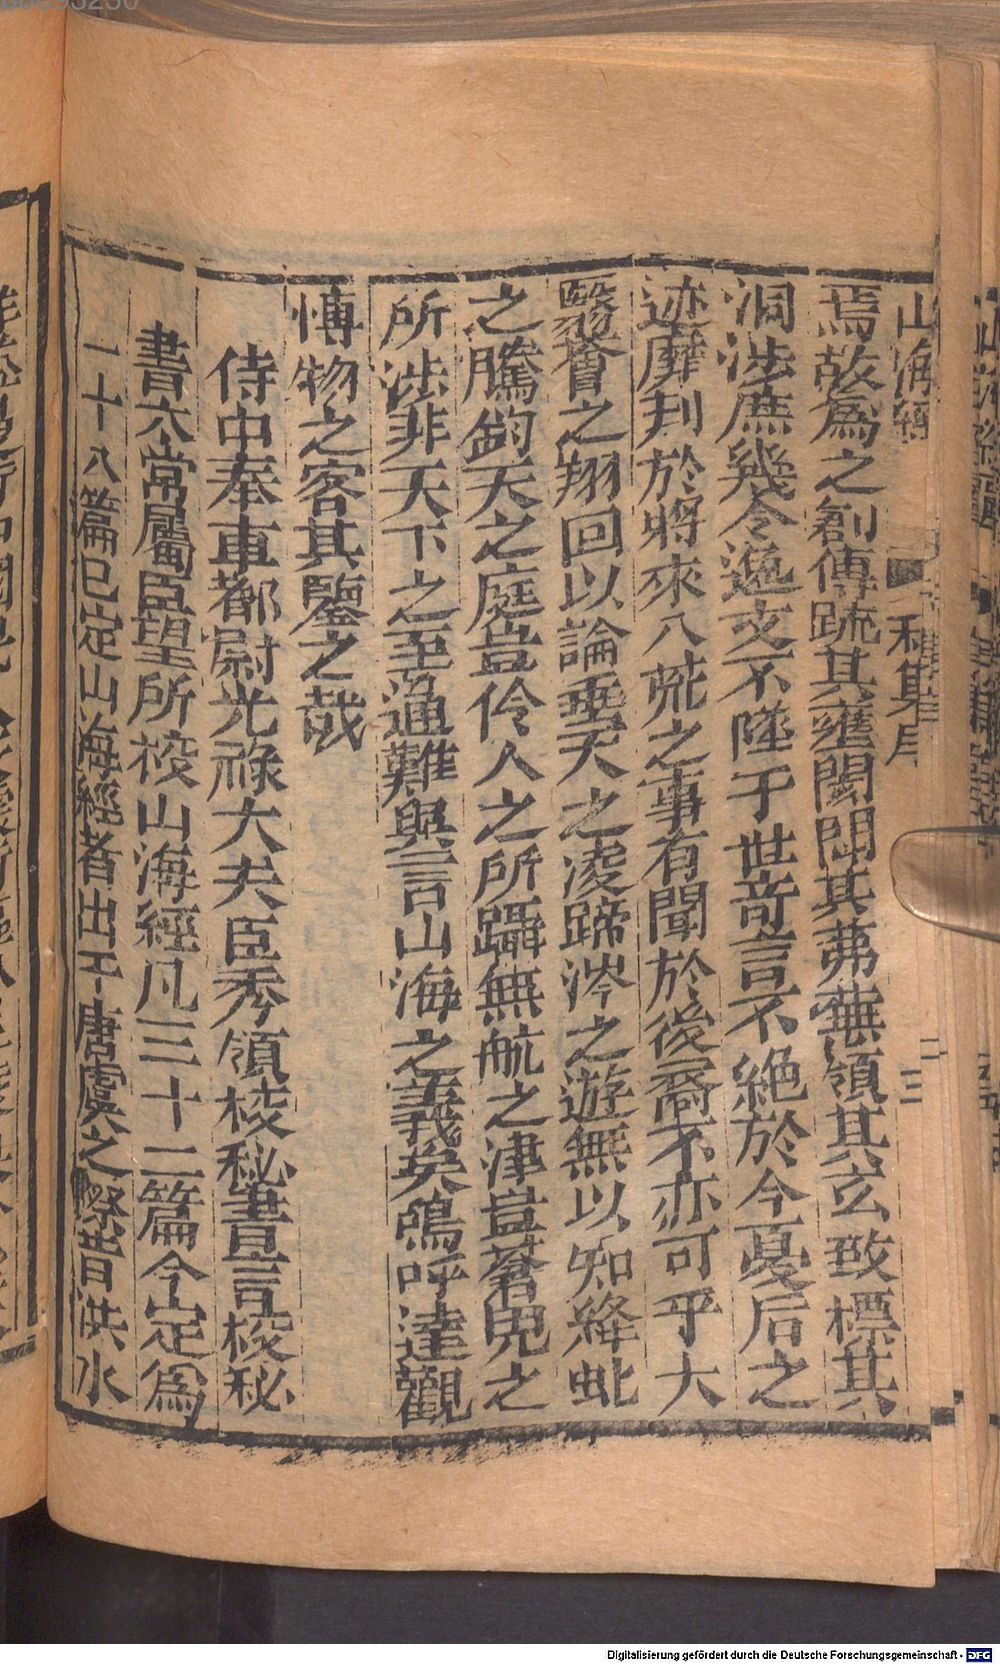 山海經
秘集序
二
三
焉故爲之創傳疏其壅閡闢其茀蕪領其玄致標其
洞涉庶幾令逸文不墜于世奇言不絶於今夏后之
迹靡刋於將來八荒之事有聞於後裔不亦可乎大
翳薈之翔回以論垂天之凌蹄涔之遊無以知絳虬
之騰鈞天之庭豈伶人之所躡無航之津豈蒼兕之
所涉非天下之至通難與言山海之義矣嗚呼達觀
博物之客其鑒之哉
侍中奉車都尉光祿大夫臣秀領校秘書言校秘
書太常屬臣望所校山海經凡三十二篇今定爲
一十八篇已定山海經者出于唐虞之際昔洪水
Digitalisierung gefördert durch die Deutsche Forschungsgemeinschaft - DFG